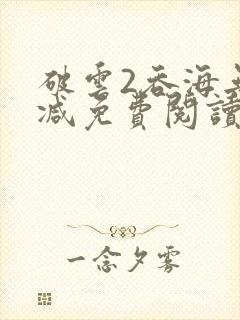 破雲2吞海無
減免費閱讀
一念夕霧